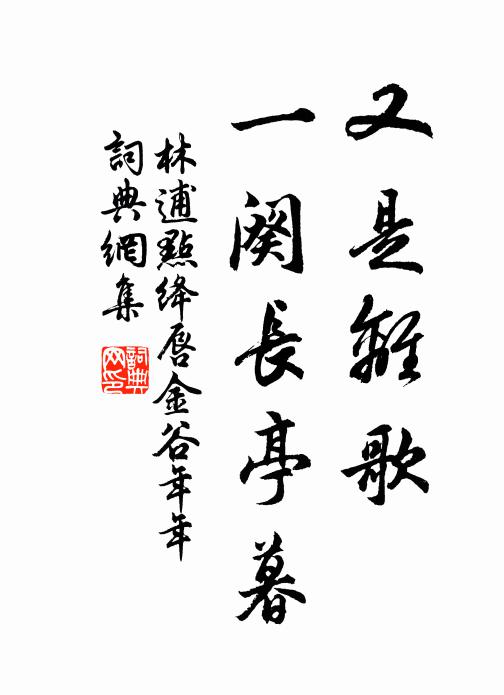 又是離歌
一闋長亭暮
林逋點絳唇金谷年年
詞典網集
詞典網印